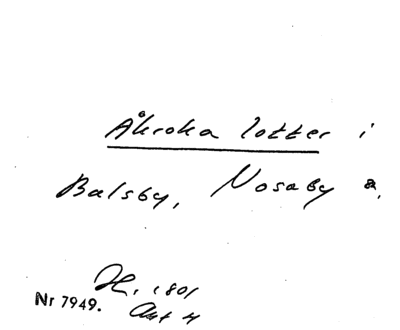 Åkroka lotter i
Balsby, Nosaby s.
H. 1801
Nr 7949. Akt 4